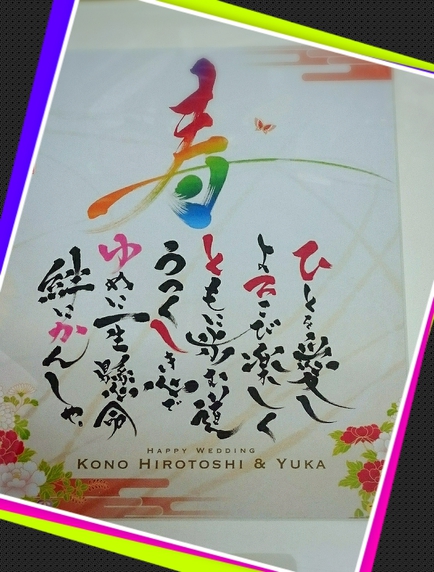 寿
ひとを愛し
よろこび楽しく
ともに歩む道
うつくしき心で
ゆめに一生懸命
絆にかんしゃ
HAPPY WEDDING
KONO HIROTOSHI & YUKA